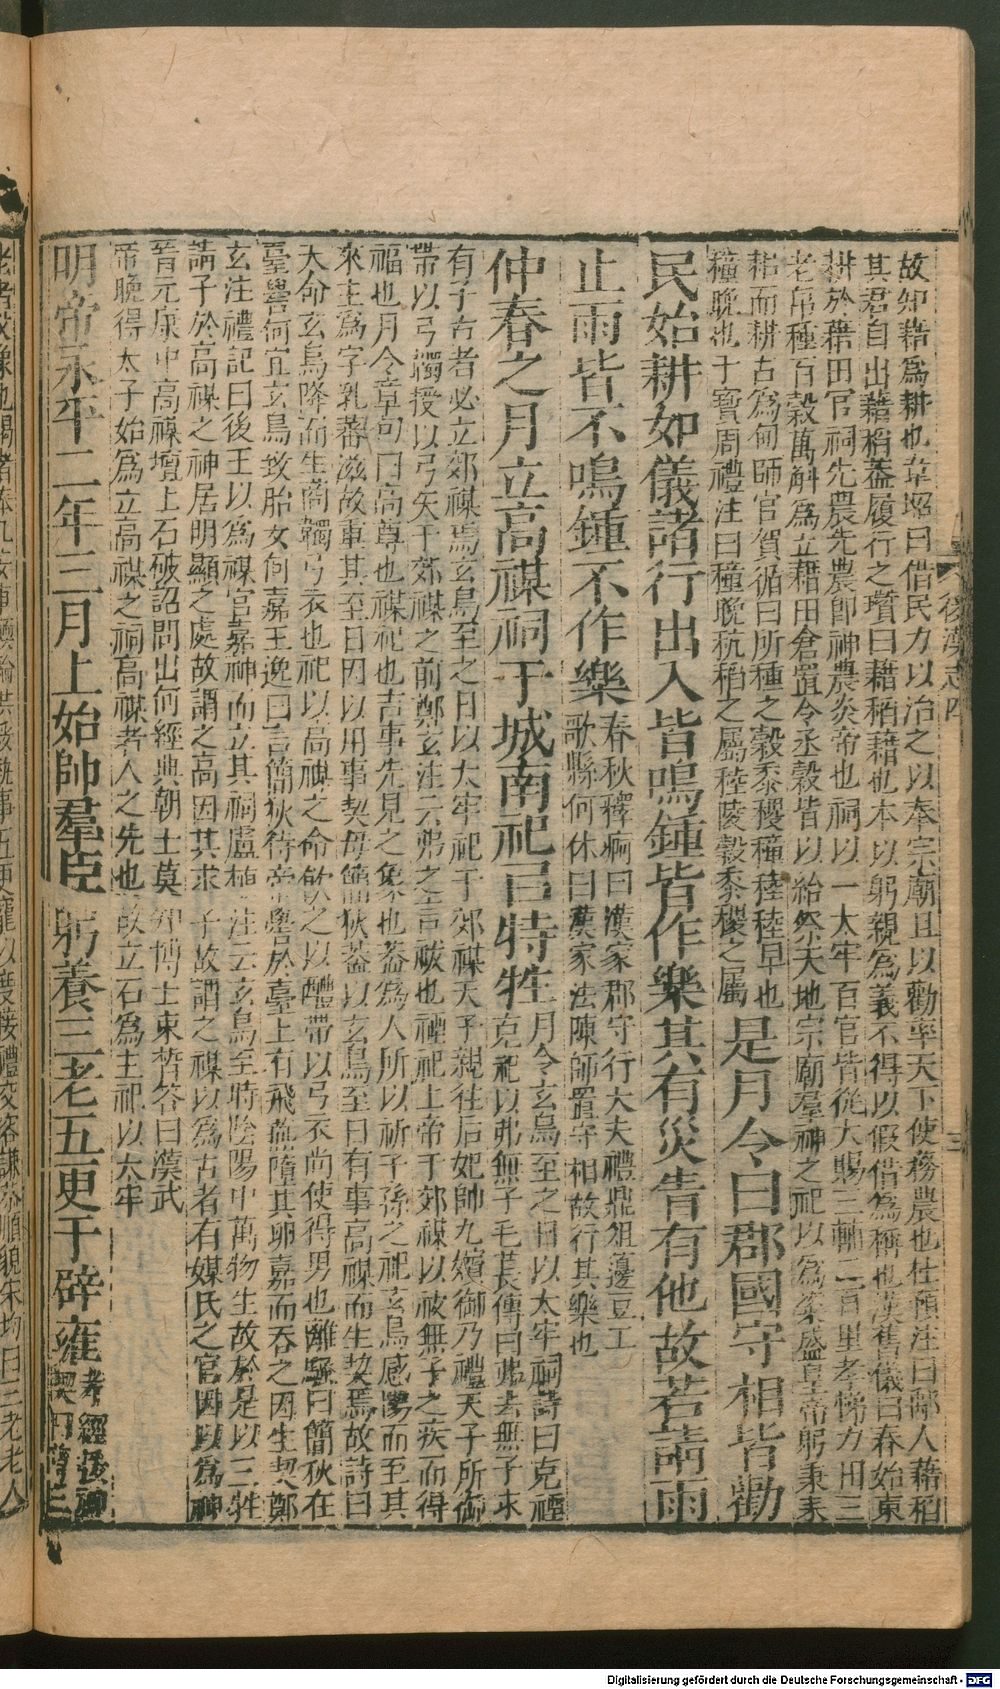 故知藉爲耕也韋昭曰借民力以治之以奉宗廟且以勸率天下使務農也杜預注曰鄅人藉稻
其君自出藉稻蓋履行之瓚曰藉稻藉也本以躬親爲義不得以假借爲稱也漢舊儀曰春始東
耕於藉田官祠先農先農卽神農炎帝也祠以一太牢百官皆從大賜三輔二百里孝悌力田三
老帛種百穀萬斛爲立藉田倉置令丞穀皆以給祭天地宗廟羣神之祀以爲粢盛皇帝躬秉耒
耜而耕古爲甸師官賀循曰所種之穀黍稷穜稑稑早也
穜晚也干寶周禮注曰穜晚秔稻之屬稑陵穀黍稷之屬
是月令曰郡國守相皆勸
民始耕如儀諸行出入皆鳴鍾皆作樂其有災眚有他故若請雨
止雨皆不鳴鍾不作樂
春秋釋痾曰漢家郡守行大夫禮鼎俎籩豆工
歌縣何休曰漢家法陳師置守相故行其樂也
仲春之月立高禖祠于城南祀已特牲
月令玄鳥至之日以太牢祠詩曰克禋
克祀以弗無子毛萇傳曰弗去無子求
有子古者必立郊禖焉玄鳥至之日以太牢祀于郊禖天子親往后妃帥九嬪御乃禮天子所御
帶以弓韣授以弓矢于郊禖之前鄭玄注云弗之言祓也禋祀上帝于郊禖以祓無子之疾而得
福也月令章句曰高尊也禖祀也吉事先見之象也蓋爲人所以祈子孫之祀玄鳥感陽而至其
來主爲字乳蕃滋故重其至日因以用事契母簡狄蓋以玄鳥至日有事高禖而生契焉故詩曰
大命玄鳥降而生商韣弓衣也祀以高禖之命飲之以醴帶以弓衣尚使得男也離騷曰簡狄在
臺嚳何宜玄鳥致胎女何嘉王逸曰言簡狄侍帝嚳於臺上有飛燕隋其卵嘉而吞之因生契鄭
玄注禮記曰後王以爲禖官嘉神而立其祠盧植注云玄鳥至時陰陽中萬物生故於是以三牲
請子於高禖之神居明顯之處故謂之高因其求子故謂之禖以爲古者有媒氏之官因以爲神
晉元康中高禖壇上石破詔問出何經典朝士莫知博士束晳答曰漢武
帝晚得太子始爲立高禖之祠高禖者人之先也故立石爲主祀以太牢
明帝永平二年三月上始帥羣臣躬養三老五更于辟雍
孝經援神
契曰尊三
後漢志四
三
Digitalisierung gefördert durch die Deutsche Forschungsgemeinschaft - DFG